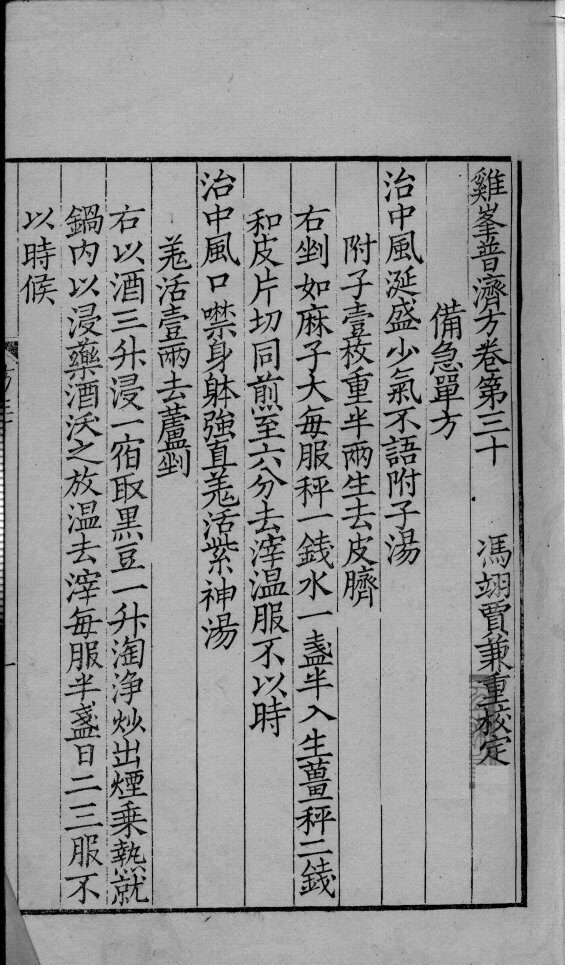 雞峯普濟方卷第三十　馮翊賈兼重校定
備急單方
治中風涎盛少氣不語附子湯
附子壹枚重半兩生去皮臍
右剉如麻子大每服秤一錢水一盞半入生薑秤二錢
和皮片切同煎至六分去滓温服不以時
治中風口噤身躰強直羗活紫神湯
羗活壹兩去蘆剉
右以酒三升浸一宿取黑豆一升淘净炒出煙乗熱就
鍋内以浸藥酒沃之放温去滓每服半盞日二三服不
以時候